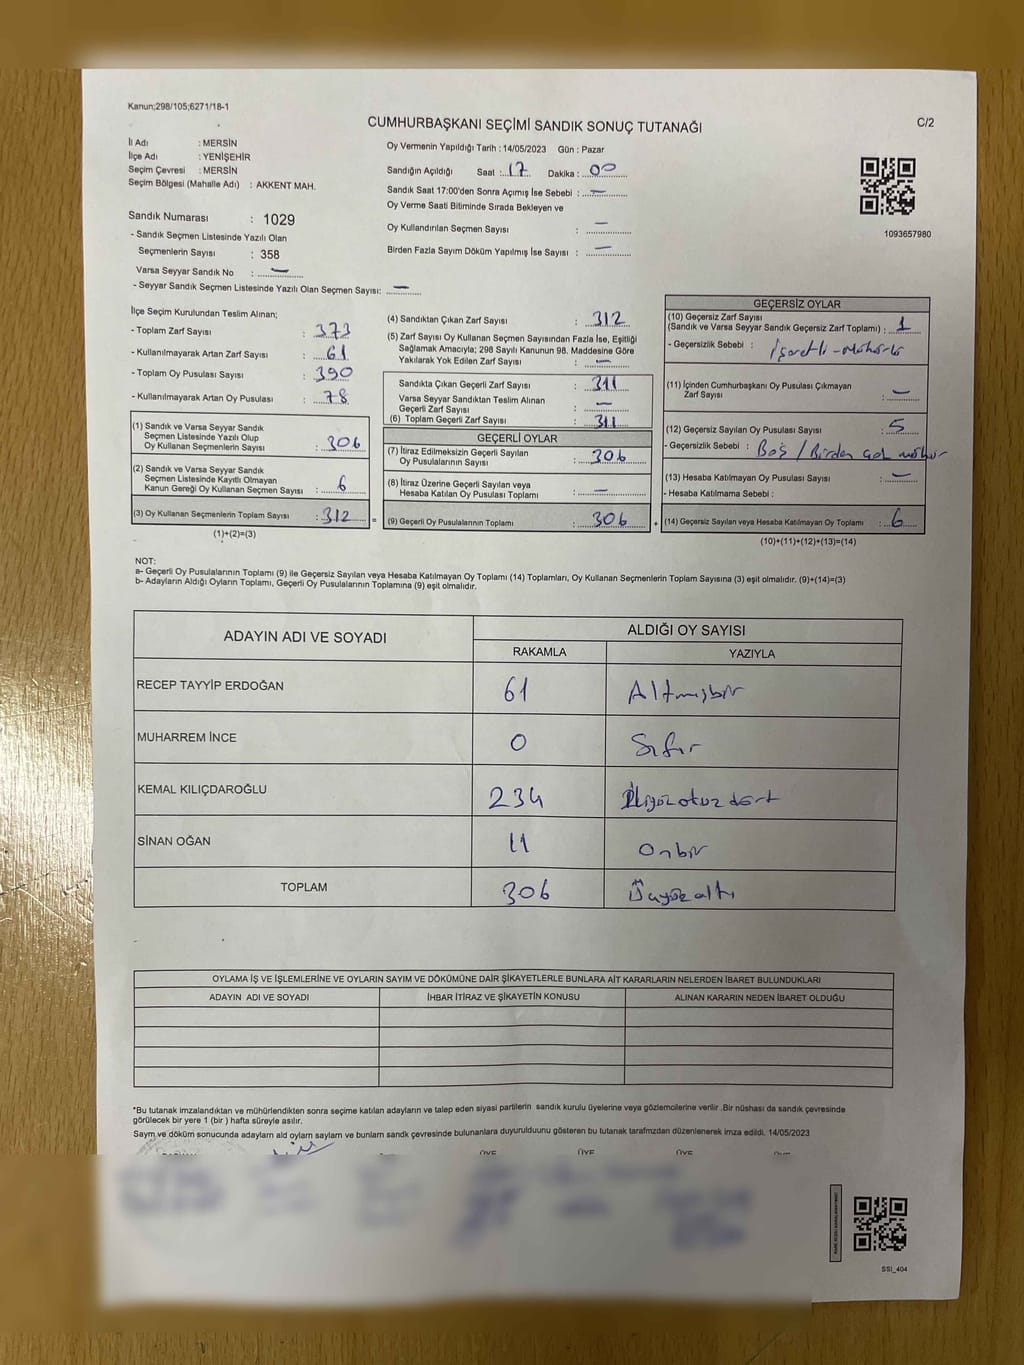 Kanun;298/105;6271/18-1
CUMHURBAŞKANI SEÇİMİ SANDIK SONUÇ TUTANAĞI
C/2
İl Adı : MERSİN
İlçe Adı : YENİŞEHİR
Seçim Çevresi : MERSİN
Seçim Bölgesi (Mahalle Adı) : AKKENT MAH.
Oy Vermenin Yapıldığı Tarih : 14/05/2023 Gün : Pazar
Sandığın Açıldığı Saat : 17 Dakika : 00
Sandık Saat 17:00'den Sonra Açımış İse Sebebi : —
Oy Verme Saati Bitiminde Sırada Bekleyen ve
Oy Kullandırılan Seçmen Sayısı : —
Birden Fazla Sayım Döküm Yapılmış İse Sayısı : —
1093657980
Sandık Numarası : 1029
- Sandık Seçmen Listesinde Yazılı Olan
Seçmenlerin Sayısı : 358
Varsa Seyyar Sandık No : —
- Seyyar Sandık Seçmen Listesinde Yazılı Olan Seçmen Sayısı: —
İlçe Seçim Kurulundan Teslim Alınan;
- Toplam Zarf Sayısı : 373
- Kullanılmayarak Artan Zarf Sayısı : 61
- Toplam Oy Pusulası Sayısı : 390
- Kullanılmayarak Artan Oy Pusulası : 78
(1) Sandık ve Varsa Seyyar Sandık
Seçmen Listesinde Yazılı Olup
Oy Kullanan Seçmenlerin Sayısı : 306
(2) Sandık ve Varsa Seyyar Sandık
Seçmen Listesinde Kayıtlı Olmayan
Kanun Gereği Oy Kullanan Seçmen Sayısı : 6
(3) Oy Kullanan Seçmenlerin Toplam Sayısı : 312 =
(1)+(2)=(3)
(4) Sandıktan Çıkan Zarf Sayısı : 312
(5) Zarf Sayısı Oy Kullanan Seçmen Sayısından Fazla İse, Eşitliği
Sağlamak Amacıyla; 298 Sayılı Kanunun 98. Maddesine Göre
Yakılarak Yok Edilen Zarf Sayısı : —
Sandıkta Çıkan Geçerli Zarf Sayısı : 311
Varsa Seyyar Sandıktan Teslim Alınan
Geçerli Zarf Sayısı : —
(6) Toplam Geçerli Zarf Sayısı : 311
GEÇERLİ OYLAR
(7) İtiraz Edilmeksizin Geçerli Sayılan
Oy Pusulalarının Sayısı : 306
(8) İtiraz Üzerine Geçerli Sayılan veya
Hesaba Katılan Oy Pusulası Toplamı : —
(9) Geçerli Oy Pusulalarının Toplamı : 306 +
GEÇERSİZ OYLAR
(10) Geçersiz Zarf Sayısı
(Sandık ve Varsa Seyyar Sandık Geçersiz Zarf Toplamı) : 1
- Geçersizlik Sebebi : İşaretli - Mühürlü
(11) İçinden Cumhurbaşkanı Oy Pusulası Çıkmayan
Zarf Sayısı : —
(12) Geçersiz Sayılan Oy Pusulası Sayısı : 5
- Geçersizlik Sebebi : Boş / Birden çok mühür
(13) Hesaba Katılmayan Oy Pusulası Sayısı : —
- Hesaba Katılmama Sebebi :
(14) Geçersiz Sayılan veya Hesaba Katılmayan Oy Toplamı : 6
(10)+(11)+(12)+(13)=(14)
NOT:
a- Geçerli Oy Pusulalarının Toplamı (9) ile Geçersiz Sayılan veya Hesaba Katılmayan Oy Toplamı (14) Toplamları, Oy Kullanan Seçmenlerin Toplam Sayısına (3) eşit olmalıdır. (9)+(14)=(3)
b- Adayların Aldığı Oyların Toplamı, Geçerli Oy Pusulalarının Toplamına (9) eşit olmalıdır.
ADAYIN ADI VE SOYADI
ALDIĞI OY SAYISI
RAKAMLA YAZIYLA
RECEP TAYYİP ERDOĞAN 61 Altmışbir
MUHARREM İNCE 0 Sıfır
KEMAL KILIÇDAROĞLU 234 İkiyüzotuzdört
SİNAN OĞAN 11 Onbir
TOPLAM 306 Üçyüzaltı
OYLAMA İŞ VE İŞLEMLERİNE VE OYLARIN SAYIM VE DÖKÜMÜNE DAİR ŞİKAYETLERLE BUNLARA AİT KARARLARIN NELERDEN İBARET BULUNDUKLARI
ADAYIN ADI VE SOYADI İHBAR İTİRAZ VE ŞİKAYETİN KONUSU ALINAN KARARIN NEDEN İBARET OLDUĞU
*Bu tutanak imzalandıktan ve mühürlendikten sonra seçime katılan adayların ve talep eden siyasi partilerin sandık kurulu üyelerine veya gözlemcilerine verilir .Bir nüshası da sandık çevresinde
görülecek bir yere 1 (bir ) hafta süreyle asılır.
Sayım ve döküm sonucunda adayların ald oyların sayların ve bunların sandk çevresinde bulunanlara duyurulduunu gösteren bu tutanak tarafımzdan düzenlenerek imza edildi. 14/05/2023
ÜYE ÜYE ÜYE ÜYE
SSI_404